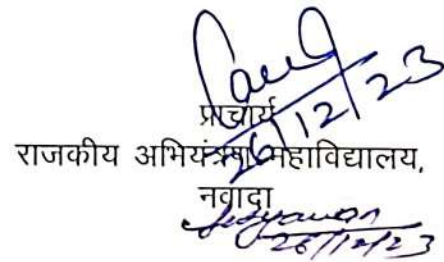 26/12/23
प्राचार्य
राजकीय अभियंत्रण महाविद्यालय,
नवादा
26/12/23